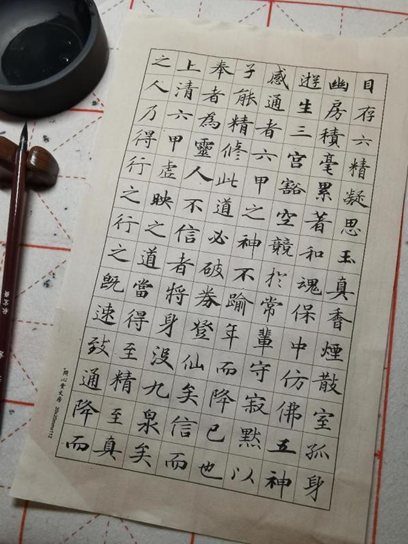 目存六精凝思玉真香煙散室孤身
幽房積毫累著和魂保中仿佛五神
遊生三宮豁空競於常輩守寂默以
感通者六甲之神不踰年而降已也
子能精修此道必破券登仙矣信而
奉者為靈人不信者將身沒九泉矣
上清六甲虛映之道當得至精至真
之人乃得行之行之既速致通降而